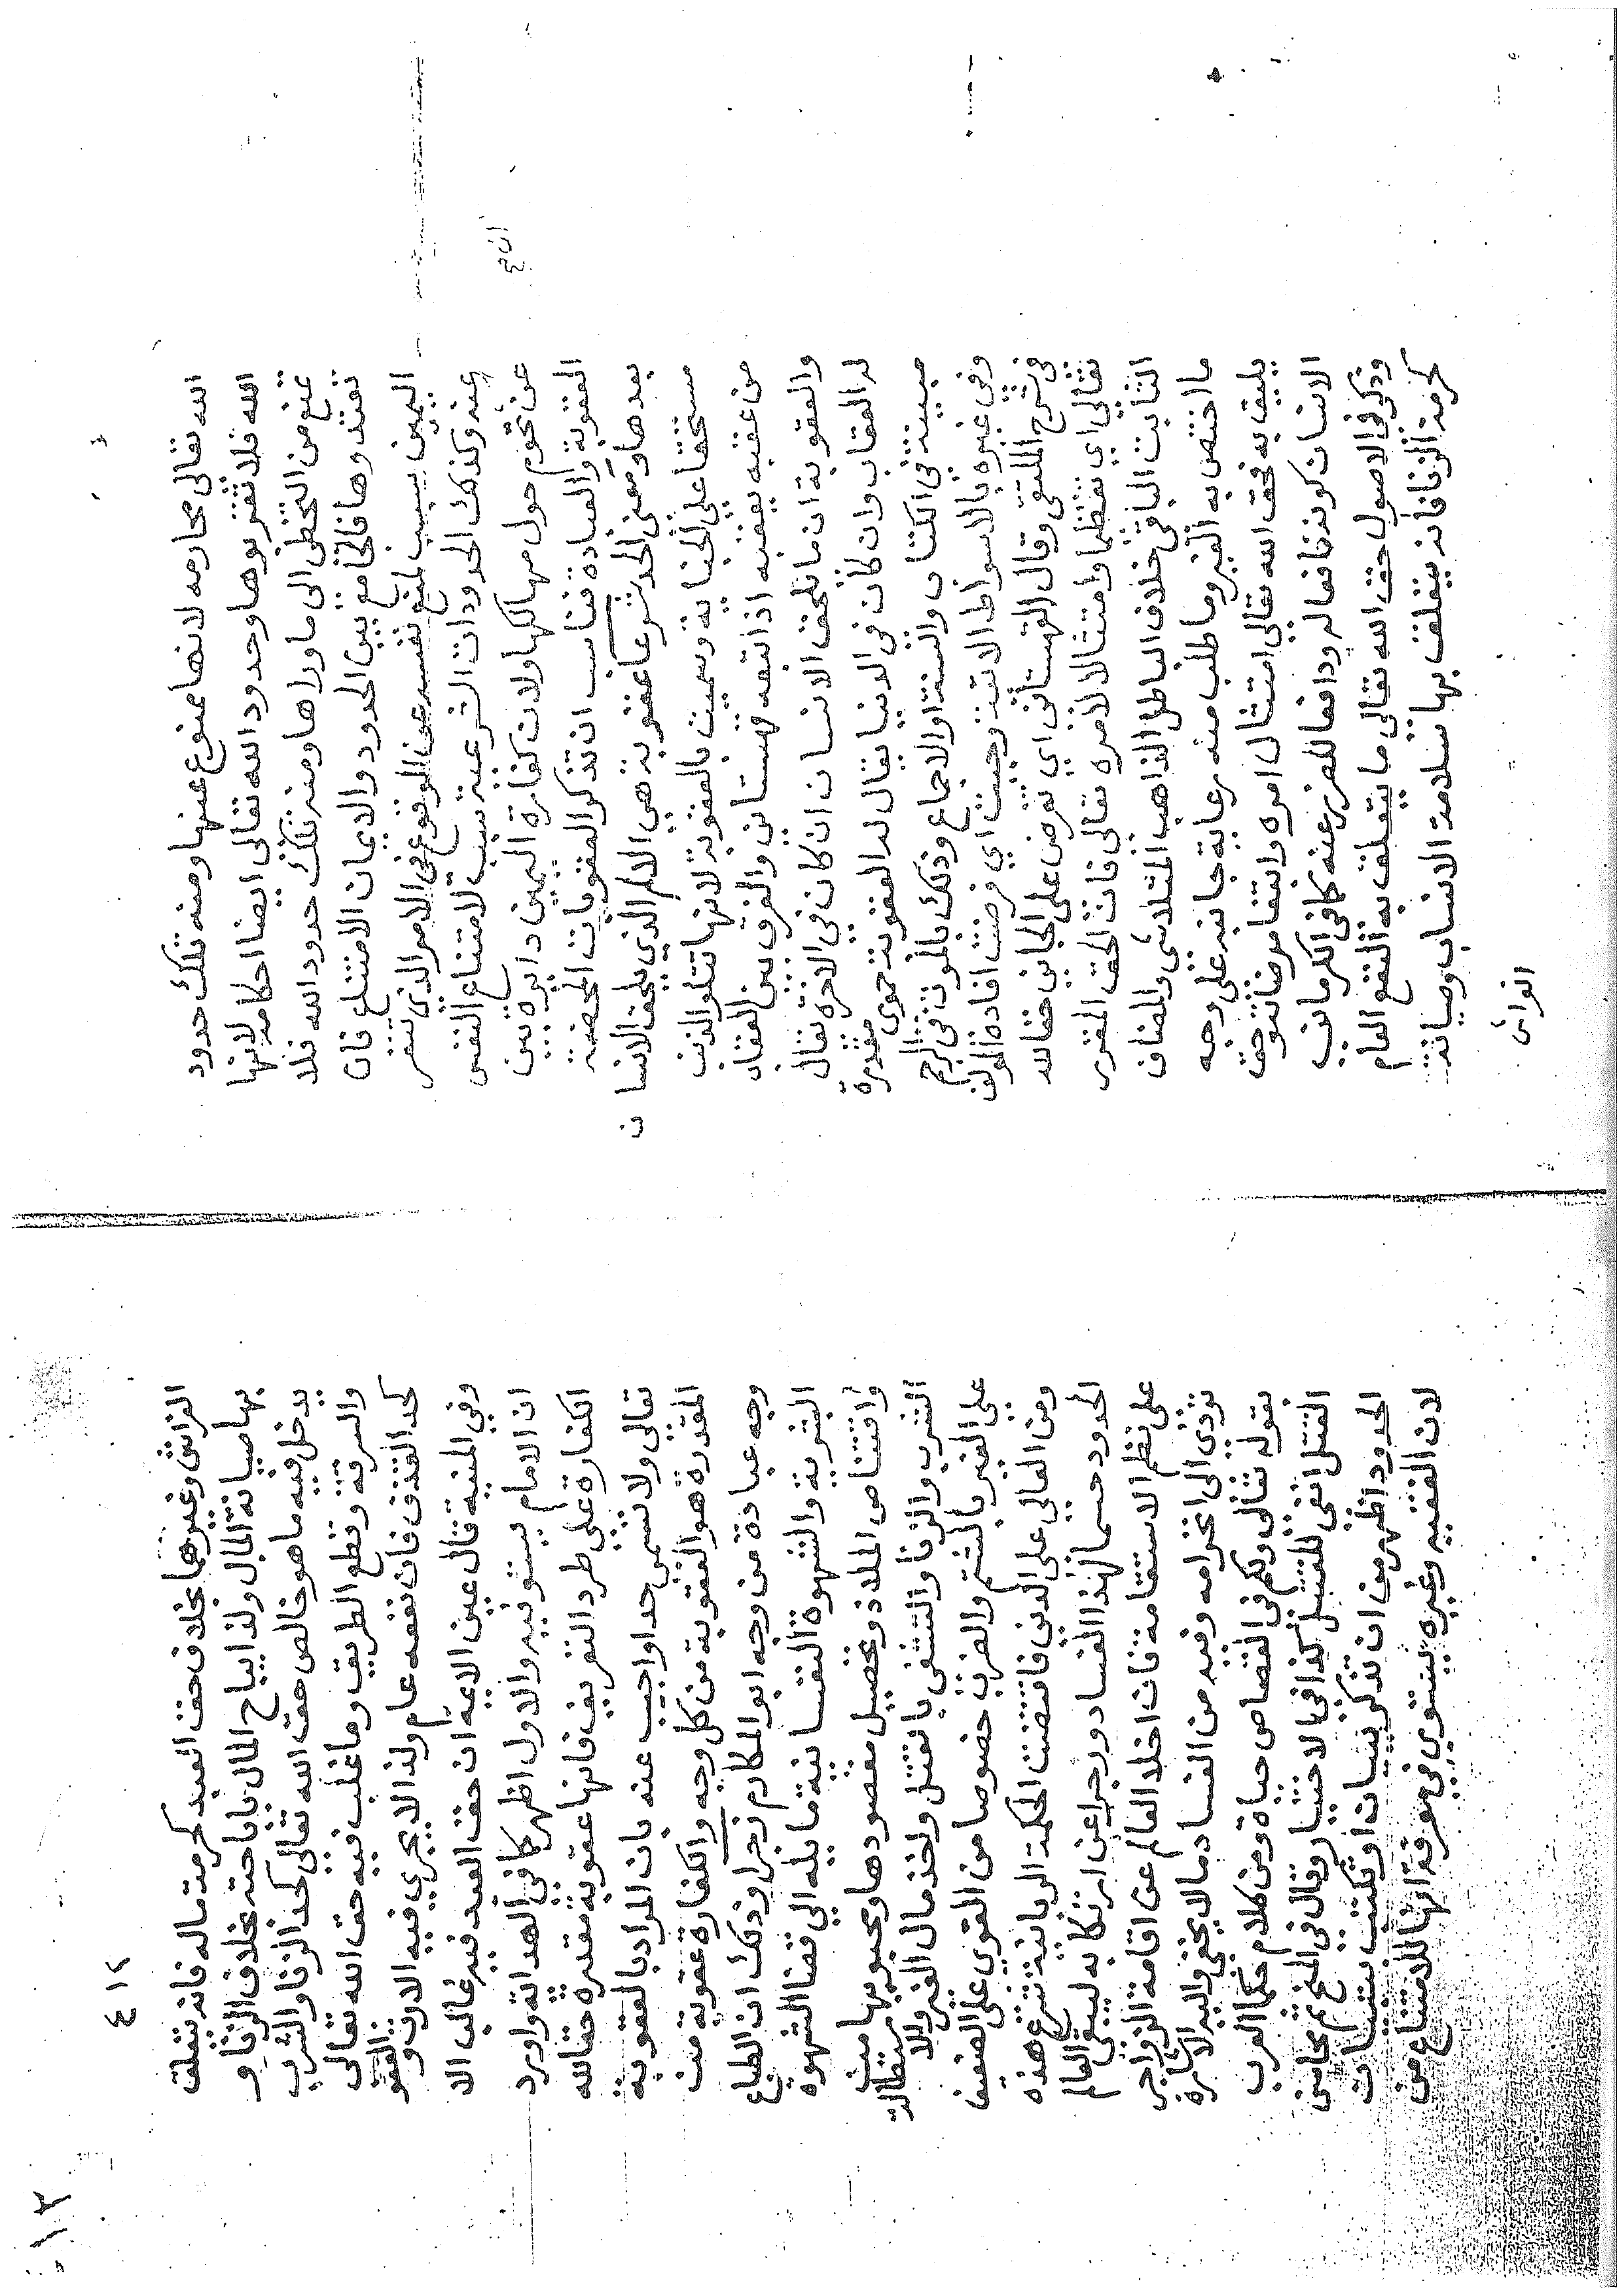 الله تعالى محارمه لانها ممنوع عنها ومنه تلك حدود
الله فلا تقربوها وحدود الله تعالى ايضا احكامه لانها
تمنع من التخطى الى ماوراها ومنه تلك حدود الله فلا
تعتدوها فالجامع بين الحدود والايمان الامتناع فان
اليمين سبب لمنع نفسه عن الوقوع فى الامر الذى تنفر
عنه وكذلك الحدودات الشرعية سبب لامتناع النفس
عن تحوم حول مهالكها ولان كفارة اليمين دايره بين
العقوبة والعبادة فناسب ان تذكر العقوبات المحضة
بعدها ومعنى الحد شرعا عقوبة هى الالم الذي يلحق الانسان
مستحقا على الجناية وسميت بالعقوبة لانها تتلو الذنب
من عقبه يعقبه اذا اتبعه قهستاني والفرق بين العقاب
والعقوبة ان ما يلحق الانسان ان كان فى الاخرة يقال
له العقاب وان كان فى الدنيا يقال له العقوبة حموى مقدرة
مبينة فى الكتاب والسنة او الاجماع وذلك بالموت فى الرجم
وفى غيره بالاسواط الاتية وجبت اي فرضت افاده المولف
فى شرح الملتقى وقال القهستانى اي تفرض على الجاني حقا لله
تعالى اي تعظيما وامتثالا لامره تعالى فان الحق المقرر
الثابت الباقى خلاف الباطل الذاهب المتلاشى والمضاف
ما اختص به الغير وما طلب منه رعاية جانبه على وجه
يليق به فحق الله تعالى امتثال امره وابتغا مرضاته وحق
الانسان كونه نافعا له ودافعا للضرر عنه كما فى الكرمانى
وذكر فى الاصول حق الله تعالى ما يتعلق به النفع العام
كحرمة الزنا فانه يتعلق بها سلامة الانساب وصيانة
الفراش
٤١٢
الفراش وغيرهما بخلاف حق العبد كحرمة ماله فانه يتعلق
بها صيانة المال ولذا يباح المال باباحته بخلاف الزنا و
يدخل فيه ما هو خالص حق الله تعالى كحد الزنا والشرب
والسرقة وقطع الطريق وما غلب فيه حق الله تعالى
كحد القذف فان نفعه عام ولذا لا يجري فيه الارث والعفو
وفي المنية قال عين الايمة ان حق العبد فيه غالب الا
ان الامام يستوفيه والاول اظهر كما في الهداية واورد
الكفارة على طرد التعريف فانها عقوبة مقدرة حقا لله
تعالى ولا تسمى حدا واجيب عنه بان المراد بالعقوبة
المقدرة هو العقوبة من كل وجه والكفارة عقوبة من
وجه عبادة من وجه ابو المكارم زجرا وذلك ان الطباع
البشرية والشهوة النفسانية مايله الي قضا الشهوه
واقتناص الملاذ وتحصيل مقصودها ومحبوبها من
الشرب والزنا والتشفى بالقتل واخذ مال الغير والاستطالة
على الغير بالشتم والضرب خصوصا من القوي على الضعيف
ومن العالي على الدني فاقتضت الحكمة الربانية شرع هذه
الحدود حسما لهذا الفساد وزجرا عن ارتكابه ليبقى العالم
على نظم الاستقامة فان اخلا العالم عن اقامة الزواجر
تؤدى الى انخرامه وفيه من الفساد ما لا يخفى واليه الاشارة
بقوله تعالى ولكم فى القصاص حياة ومن كلام حكما العرب
القتل انفى للقتل كذا في الاختيار وقال فى المنح ثم محاسن
الحدود اظهر من ان تذكر ببيان او تكتب ببنان
لان الفقيه وغيره يستوي في معرفة انها للامتناع من
١٣